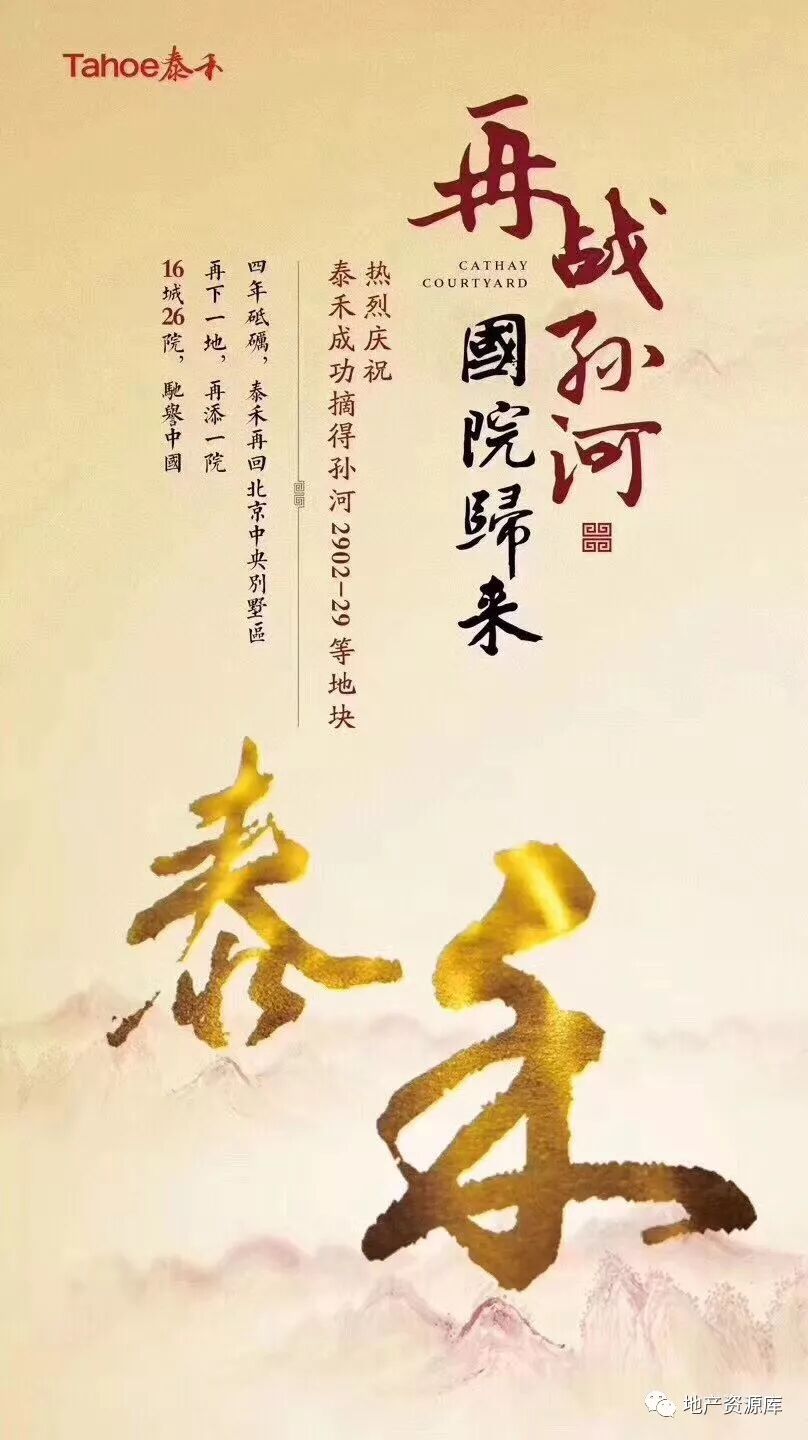 Tahoe泰禾
再战孙河
CATHAY
COURTYARD
國院歸来
热烈庆祝
泰禾成功摘得孙河2902-29等地块
四年砥礪，泰禾再回北京中央別墅區
再下一地，再添一院
16城26院，馳譽中國
泰禾
地产资源库